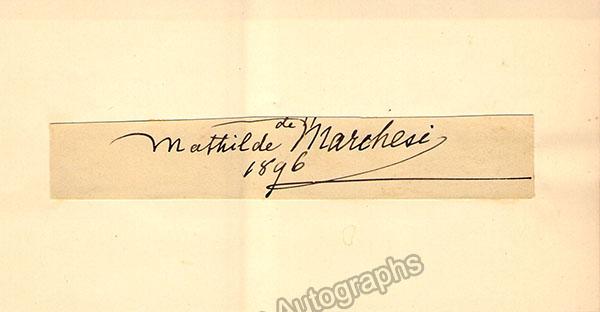 Mathilde de Marchesi
1896
Autographs